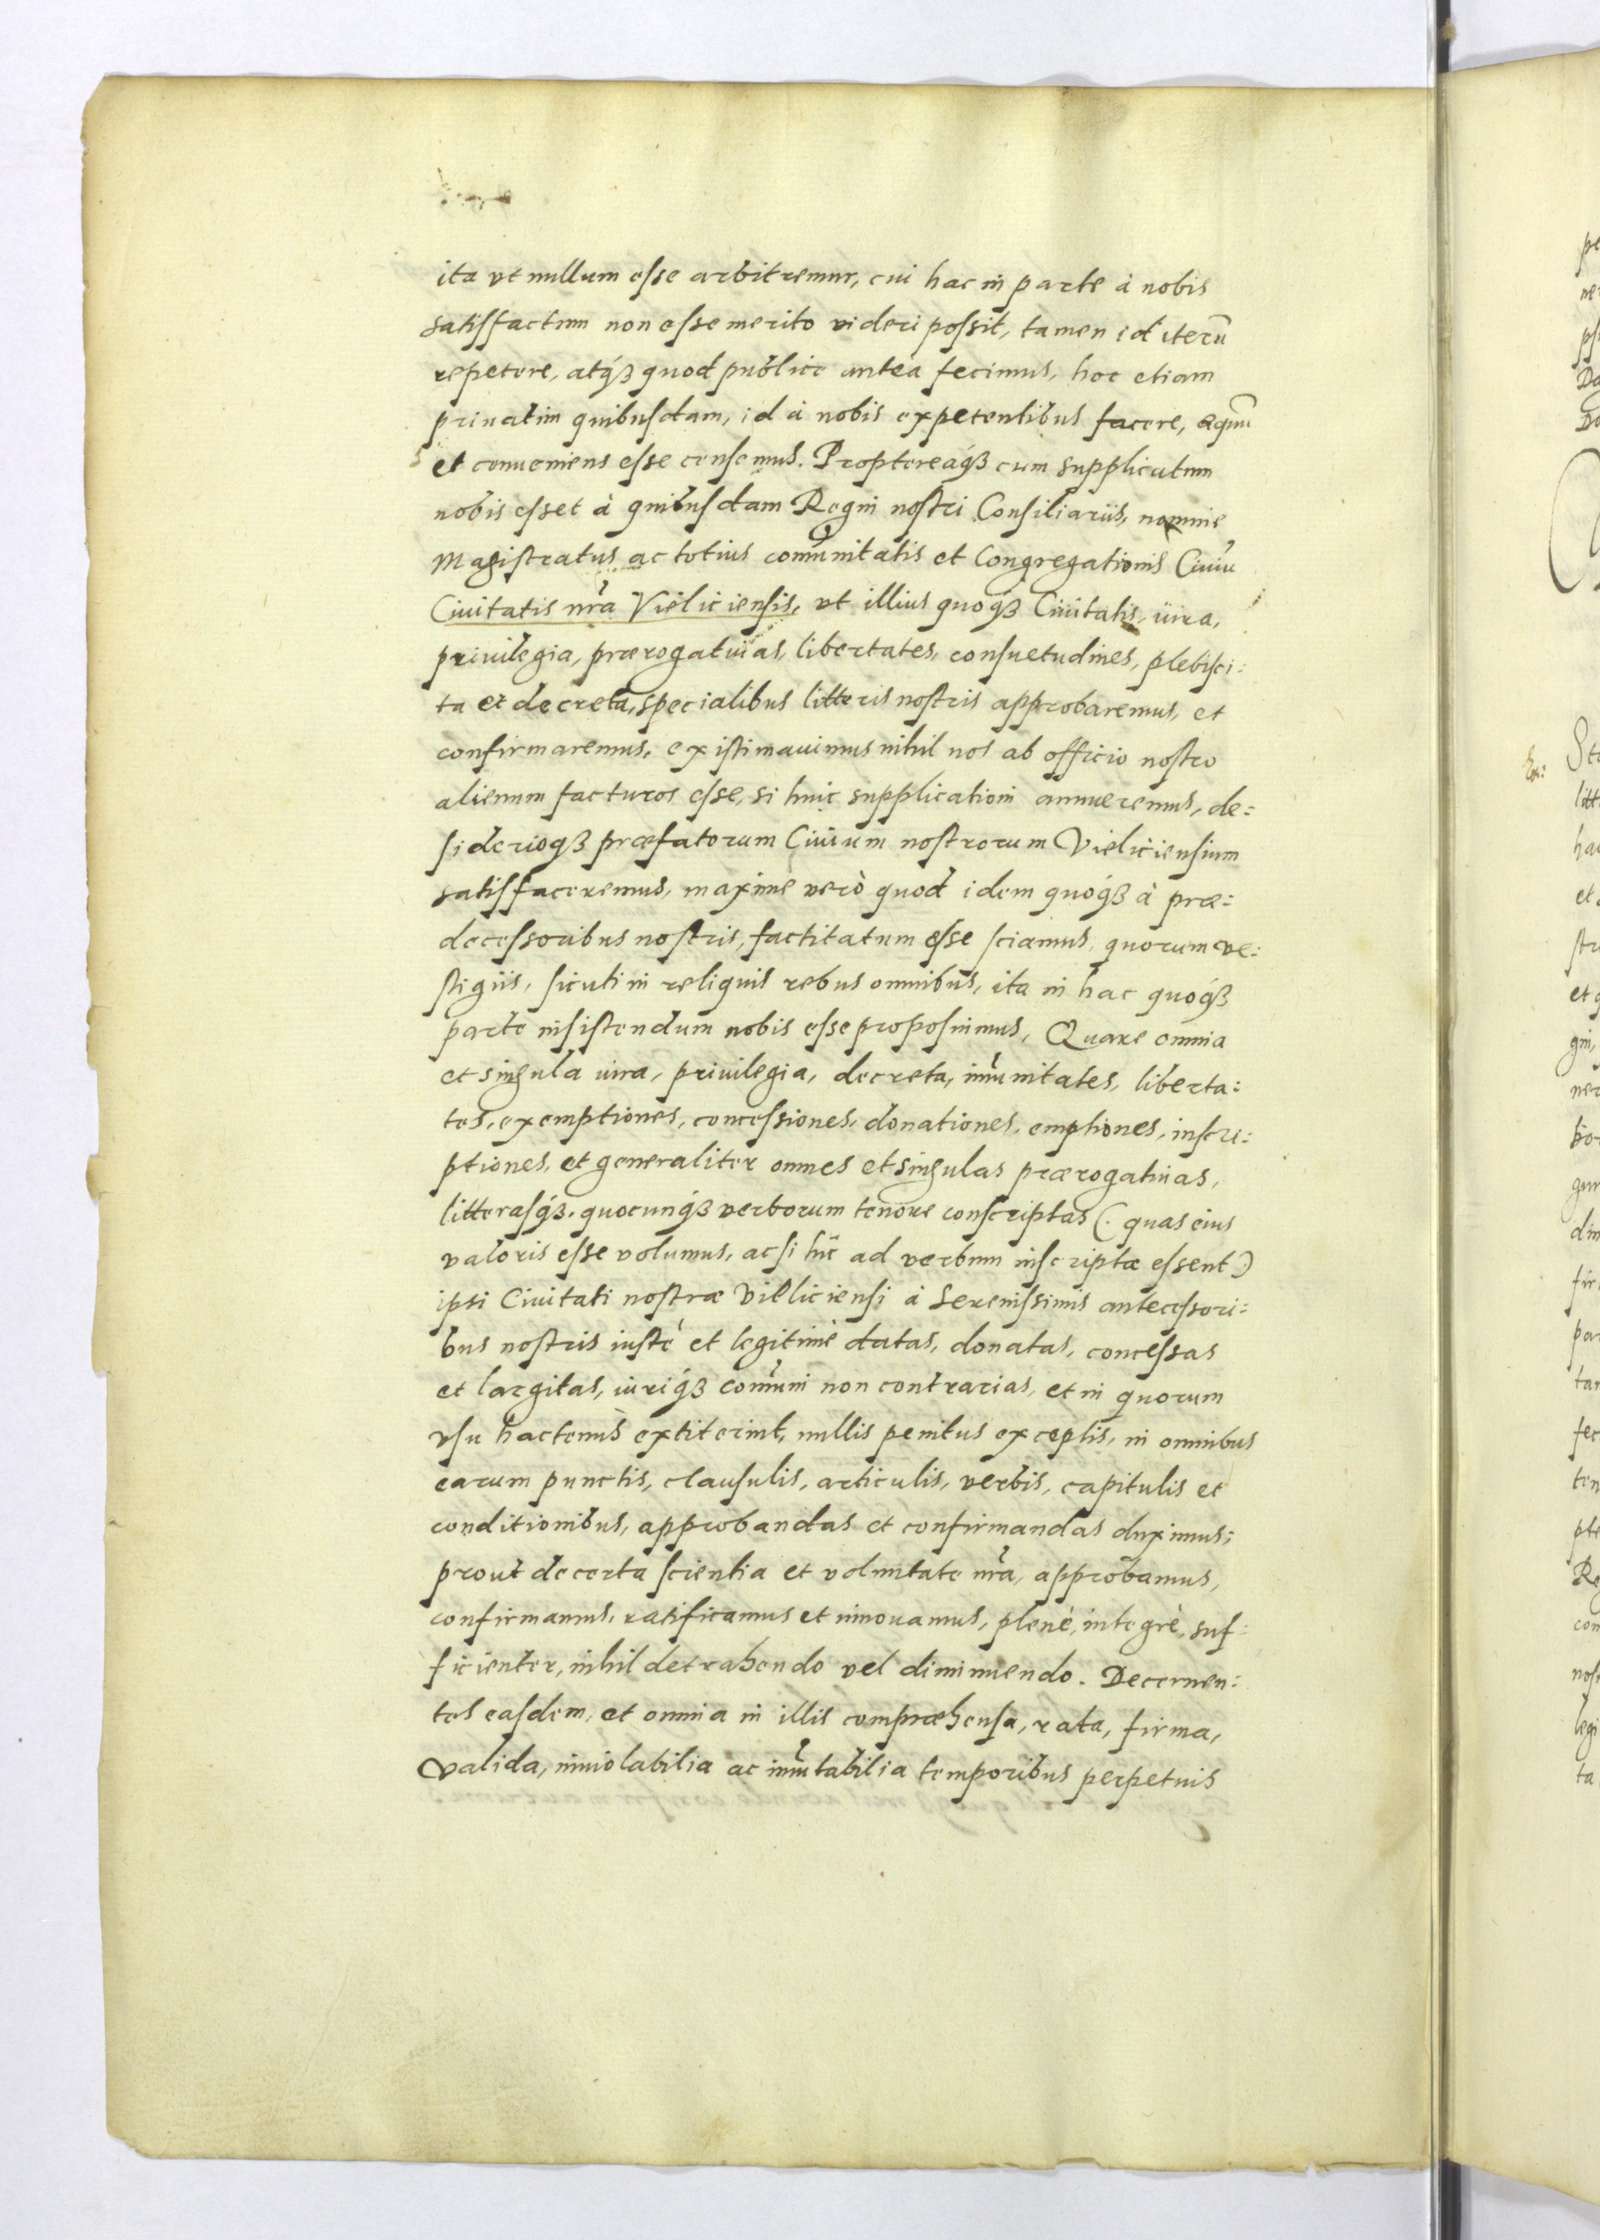 ita vt nullum esse arbitremur, cui hac in parte à nobis
satisfactum non esse merito videri possit, tamen id iterũ
repetere, atq́ꝫ quod publicè anteà fecimus, hoc etiam
priuatim quibusdam, id à nobis expetentibus facere, æquũ
et conueniens esse censemus. Proptereáq́ꝫ cum supplicatum
nobis esset à quibusdam Regni nostri Consiliariis, nomine
Magistratus ac totius com̃unitatis et Congregationis Ciuiũ
Ciuitatis nr̃a Vieliciensis, vt illius quoq́ꝫ Ciuitatis, iura,
priuilegia, prærogatiuas, libertates, consuetudines, plebisci:
ta et decreta, specialibus litteris nostris approbaremus, et
confirmaremus, existimauimus nihil nos ab officio nostro
alienum facturos esse, si huic supplicationi annueremus, de:
siderioqꝫ præfatorum Ciuium nostrorum Vieliciensium
satisfaceremus, maximè verò quod idem quoq́ꝫ à præ:
decessoribus nostris, factitatum esse sciamus, quorum ve:
stigiis, sicuti in reliquis rebus omnibus, ita in hac quoq́ꝫ
parte insistendum nobis esse proposuimus, Quare omnia
et singula iura, priuilegia, decreta, im̃unitates, liberta:
tes, exemptiones, concessiones, donationes, emptiones, inscri:
ptiones, et generaliter omnes et singulas prærogatiuas,
litterasq́ꝫ, quocunq́ꝫ verborum tenore conscriptas (. quas eius
valoris esse volumus, acsi hîc ad verbum inscriptæ essent )
ipsi Ciuitati nostræ Vieliciensi à Serenissimis antecessori:
bus nostris iustè et legitimè datas, donatas, concessas
et largitas, iuriq́ꝫ com̃uni non contrarias, et in quorum
vsu hactenus extiterint, nullis penitus exceptis, in omnibus
earum punctis, clausulis, articulis, verbis, capitulis et
conditionibus, approbandas et confirmandas duximus;
prout de certa scientia et voluntate nr̃a, approbamus,
confirmamus, ratificamus et innouamus, plenè, integrè, suf:
ficienter, nihil detrahendo vel diminuendo. Decernen:
tes easdem, et omnia in illis compræhensa, rata, firma,
valida, inuiolabilia ac im̃utabilia temporibus perpetuis